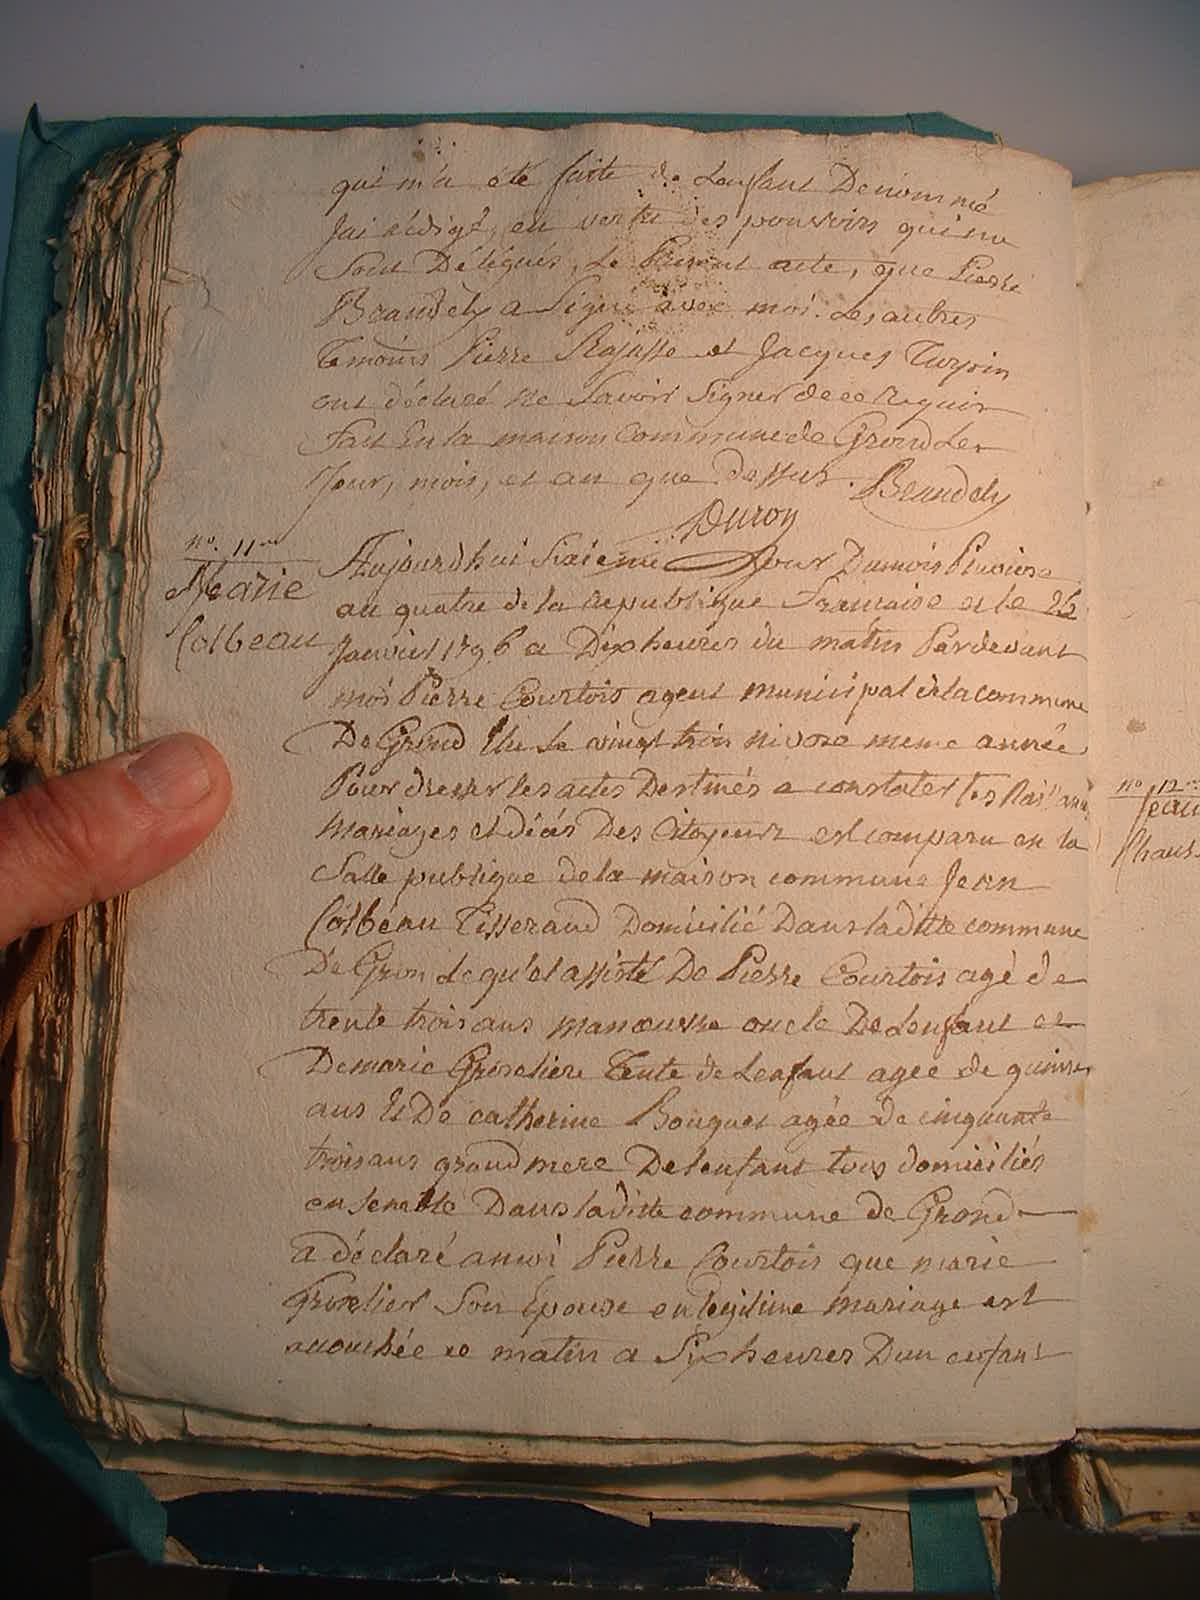 qui m'a été faite de Lenfant Denommé
Jai rédigé, en vertu des pouvoirs qui me
Sont Délégués, Le Present acte, que Pierre
Beaudely a Signé avec moi. Les autres
Temoins Pierre et Jacques Turpin
ont déclaré ne Savoir Signer de ce Requis
Fait En la maison Commune de Grond Les
Jour, mois, et an que Dessus. Beaudely
Duroy
no. 11me
Marie
Colbeau
Aujourdhui Sixieme Jour Dumois Pluviose
an quatre de la Republique Francaise et le 26
Janvier 1796 a Dix heures du matin Pardevant
moi Pierre Courtois agent municipal de la commune
De Grond Elu Le vingt trois nivose meme année
Pour dresser les actes Destinés a constater les Naissances
Mariages et décés Des Citoyens est comparu en la
Salle publique de la maison commune Jean
Colbeau Tisserand Domicilié Dans laditte commune
De Gron Lequ'el assisté De Pierre Courtois agé de
trente trois ans manœuvre oncle De Lenfant et
De marie Groselière Tente de Lenfant agee de quinse
ans Et De catherine Bouquet agée de cinquante
trois ans grand mere De lenfant tous domiciliés
ensemble Dans laditte commune de Grond
a déclaré a moi Pierre Courtois que marie
Groselier Son Epouse en legitime mariage est
accouchée ce matin a Six heures Dun enfant
no 12me
Jean